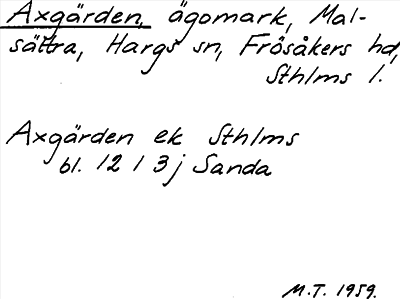 Axgärden, ägomark, Mal-
sättra, Hargs sn, Frösåkers hd,
Sthlms l.
Axgärden ek Sthlms
bl. 12 I 3 j Sanda
M.T. 1959.